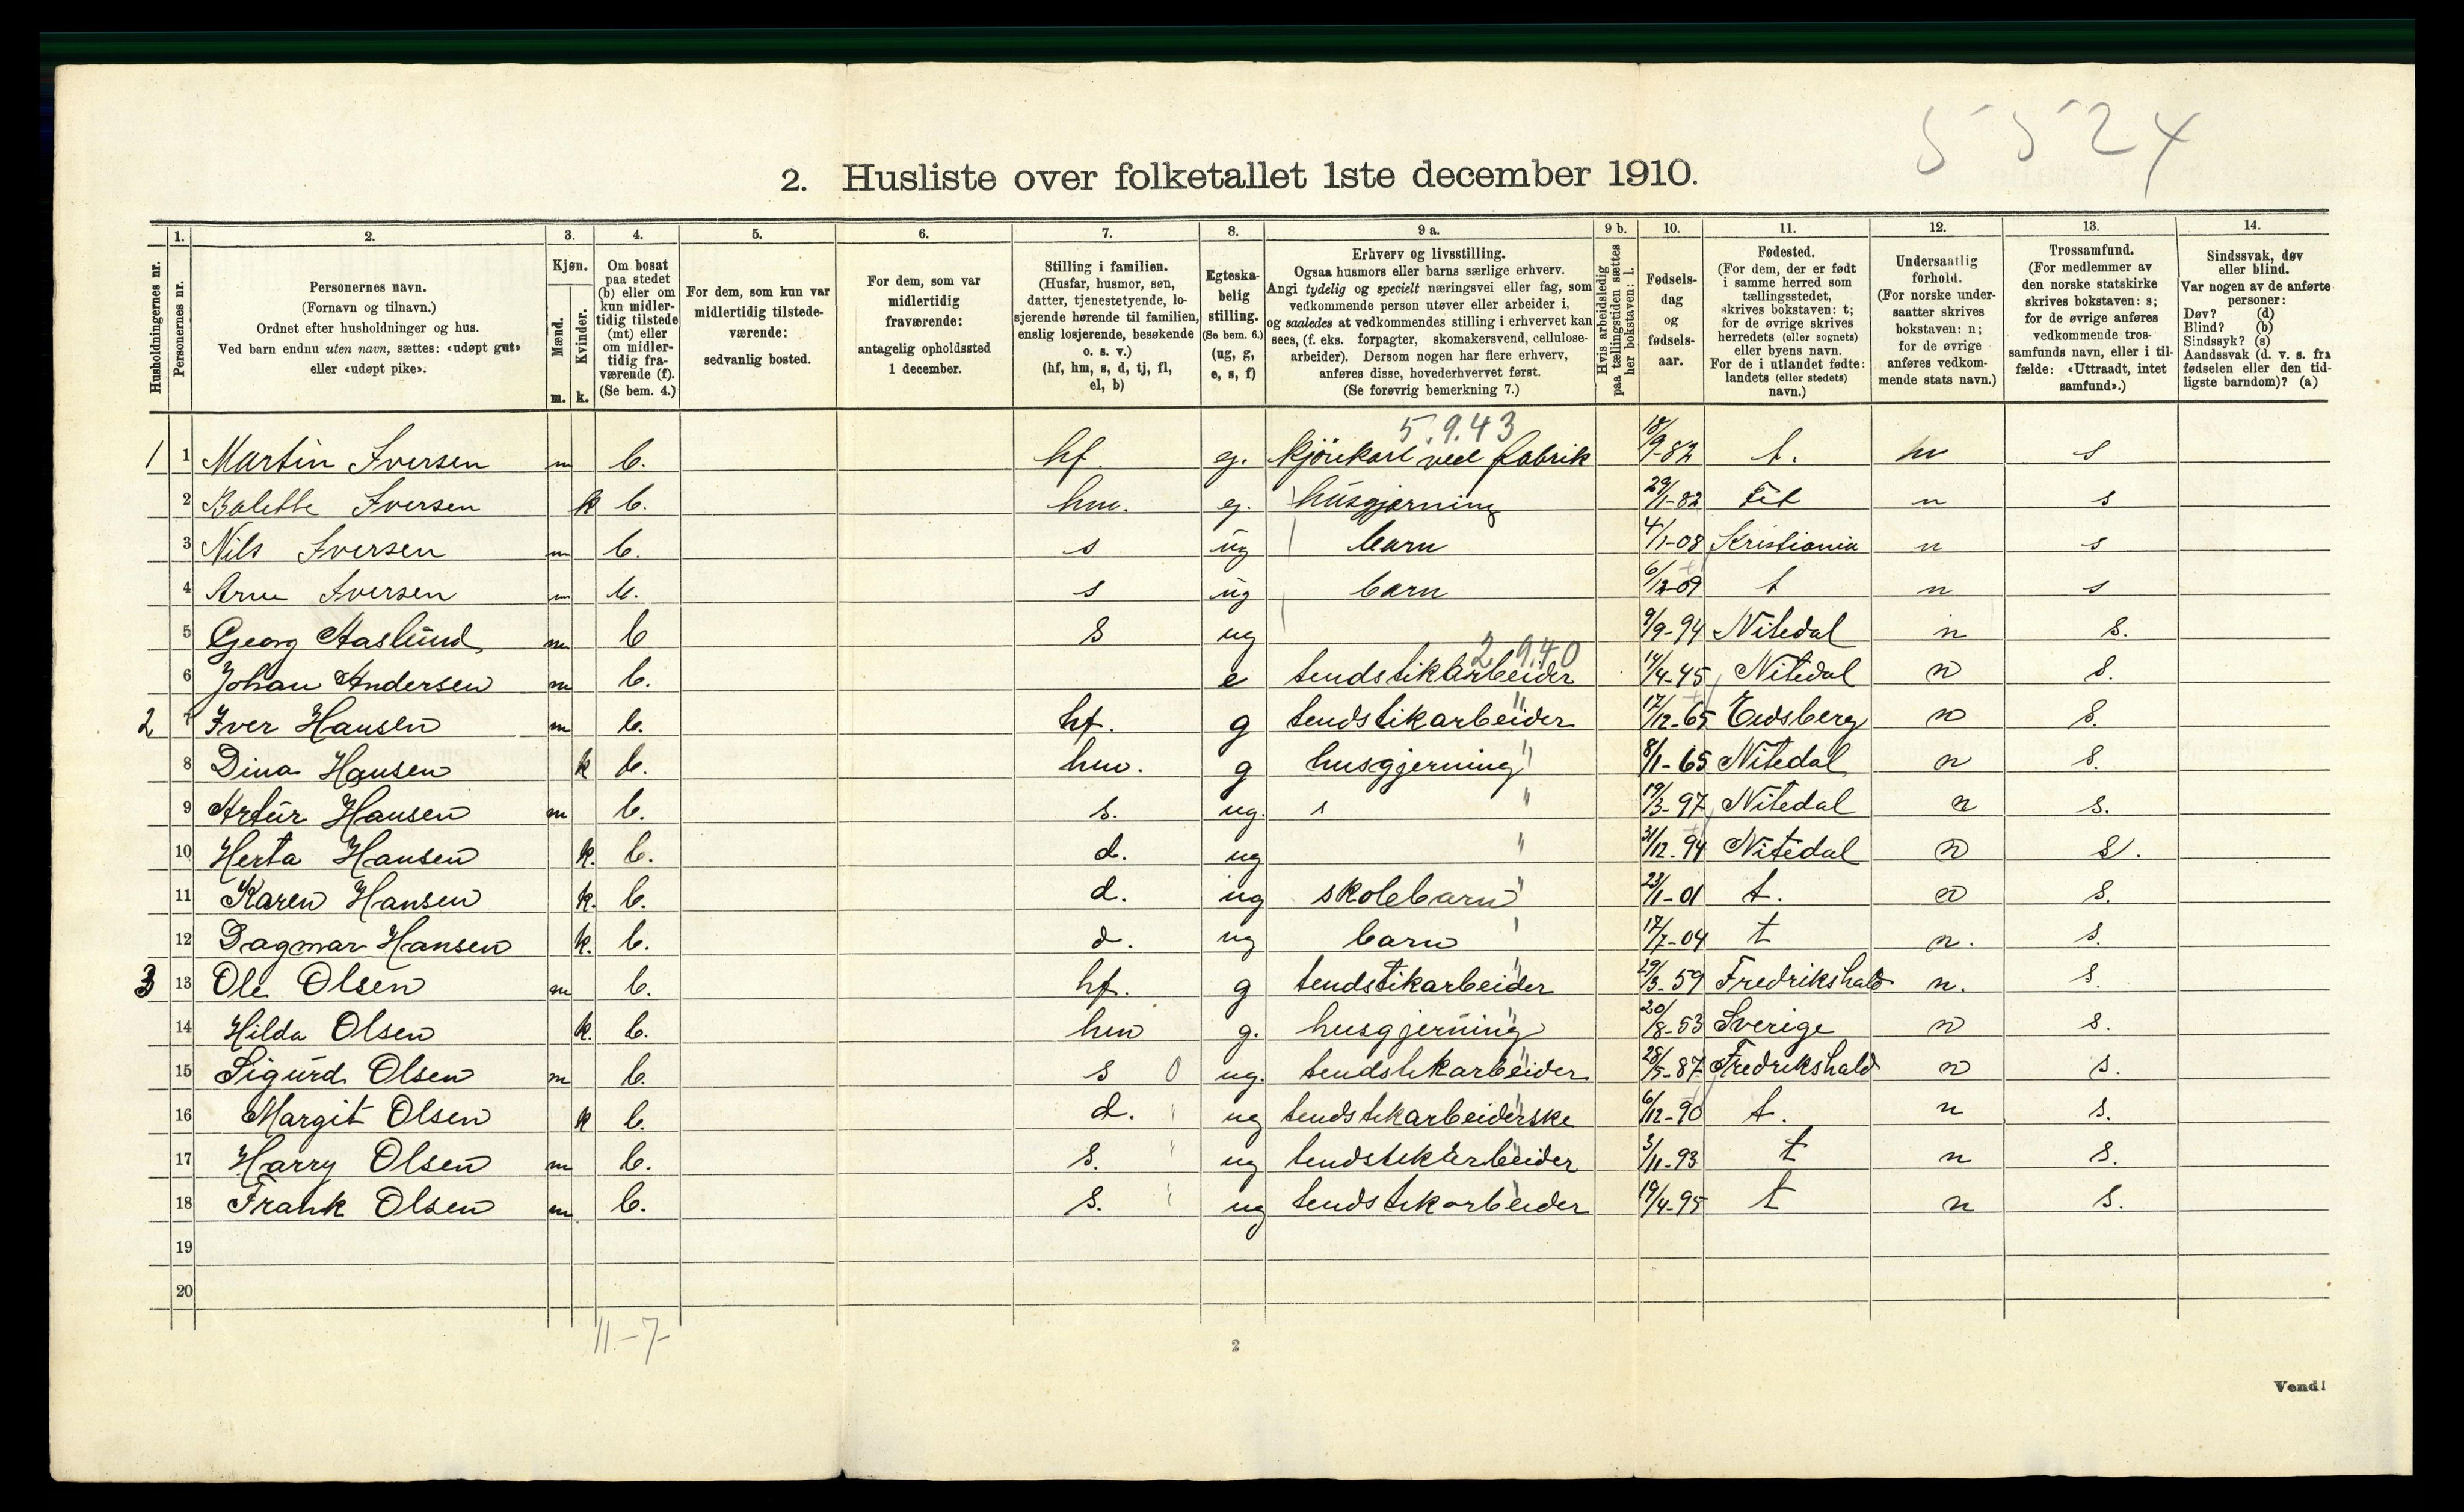 5524
2. Husliste over folketallet 1ste december 1910.
1. 2. 3. 4. 5. 6. 7. 8. 9 a. 9 b. 10. 11. 12. 13. 14.
Husholdningernes nr.
Personernes nr.
Personernes navn.
(Fornavn og tilnavn.)
Ordnet efter husholdninger og hus.
Ved barn endnu uten navn, sættes: «udøpt gut»
eller «udøpt pike».
Kjøn.
Mænd.
Kvinder.
m. k.
Om bosat
paa stedet
(b) eller om
kun midler-
tidig tilstede
(mt) eller
om midler-
tidig fra-
værende (f).
(Se bem. 4.)
For dem, som kun var
midlertidig tilstede-
værende:
sedvanlig bosted.
For dem, som var
midlertidig
fraværende:
antagelig opholdssted
1 december.
Stilling i familien.
(Husfar, husmor, søn,
datter, tjenestetyende, lo-
sjerende hørende til familien,
enslig losjerende, besøkende
o. s. v.)
(hf, hm, s, d, tj, fl,
el, b)
Egteska-
belig
stilling.
(Se bem. 6.)
(ug, g,
e, s, f)
Erhverv og livsstilling.
Ogsaa husmors eller barns særlige erhverv.
Angi tydelig og specielt næringsvei eller fag, som
vedkommende person utøver eller arbeider i,
og saaledes at vedkommendes stilling i erhvervet kan
sees, (f. eks. forpagter, skomakersvend, cellulose-
arbeider). Dersom nogen har flere erhverv,
anføres disse, hovederhvervet først.
(Se forøvrig bemerkning 7.)
Hvis arbeidsledig
paa tællingstiden sættes
her bokstaven: l.
Fødsels-
dag
og
fødsels-
aar.
Fødested.
(For dem, der er født
i samme herred som
tællingsstedet,
skrives bokstaven: t;
for de øvrige skrives
herredets (eller sognets)
eller byens navn.
For de i utlandet fødte:
landets (eller stedets)
navn.)
Undersaatlig
forhold.
(For norske under-
saatter skrives
bokstaven: n;
for de øvrige
anføres vedkom-
mende stats navn.)
Trossamfund.
(For medlemmer av
den norske statskirke
skrives bokstaven: s;
for de øvrige anføres
vedkommende tros-
samfunds navn, eller i til-
fælde: «Uttraadt, intet
samfund».)
Sindssvak, døv
eller blind.
Var nogen av de anførte
personer:
Døv? (d)
Blind? (b)
Sindssyk? (s)
Aandssvak (d. v. s. fra
fødselen eller den tid-
ligste barndom)? (a)
5.9.43
1 1 Martin Iversen m b. hf. g. kjörekarl ved fabrik 18/9-82 t. n s
2 Balette Iversen k b. hm. g. husgjerning 29/1-82 n s
3 Nils Iversen m b. s ug barn 4/1-08 Kristiania n s
4 Arne Iversen m b. s ug barn 6/12-09 t n s
5 Georg Aaslund m b s ug 9/9-94 Nitedal n s.
2 9.40
6 Johan Andersen m b. e tendstikarbeider 14/4-45 Nitedal n s.
2 7 Iver Hansen m b. hf. g tendstikarbeider " 17/12-65 Eidsberg n s.
8 Dina Hansen k b. hm. g husgjerning " 8/1-65 Nitedal n s.
9 Artur Hansen m b. s. ug. s " 19/3-97 Nitedal n s.
10 Herta Hansen k. b. d. ug " 31/12-94 Nitedal n s.
11 Karen Hansen k. b. d. ug skolebarn " 23/1-01 t. n s.
12 Dagmar Hansen k. b. d. ug barn " 17/7-04 t n. s.
3 13 Ole Olsen m b. hf. g tendstikarbeider " 29/3-59 Fredrikshald n. s.
14 Hilda Olsen k. b. hm g. husgjerning " 20/8-53 Sverige n s.
15 Sigurd Olsen m b. s 0 ug. tendstikarbeider " 28/5-87 Fredrikshald n s.
16 Margit Olsen k b. d. " ug tendstikarbeiderske " 6/12-90 t. n s.
17 Harry Olsen m b. s. " ug tendstikarbeider " 3/11-93 t n s.
18 Frank Olsen m b. s. " ug tendstikarbeider " 19/4-95 t n s.
19
20
11-7-
2
Vend!